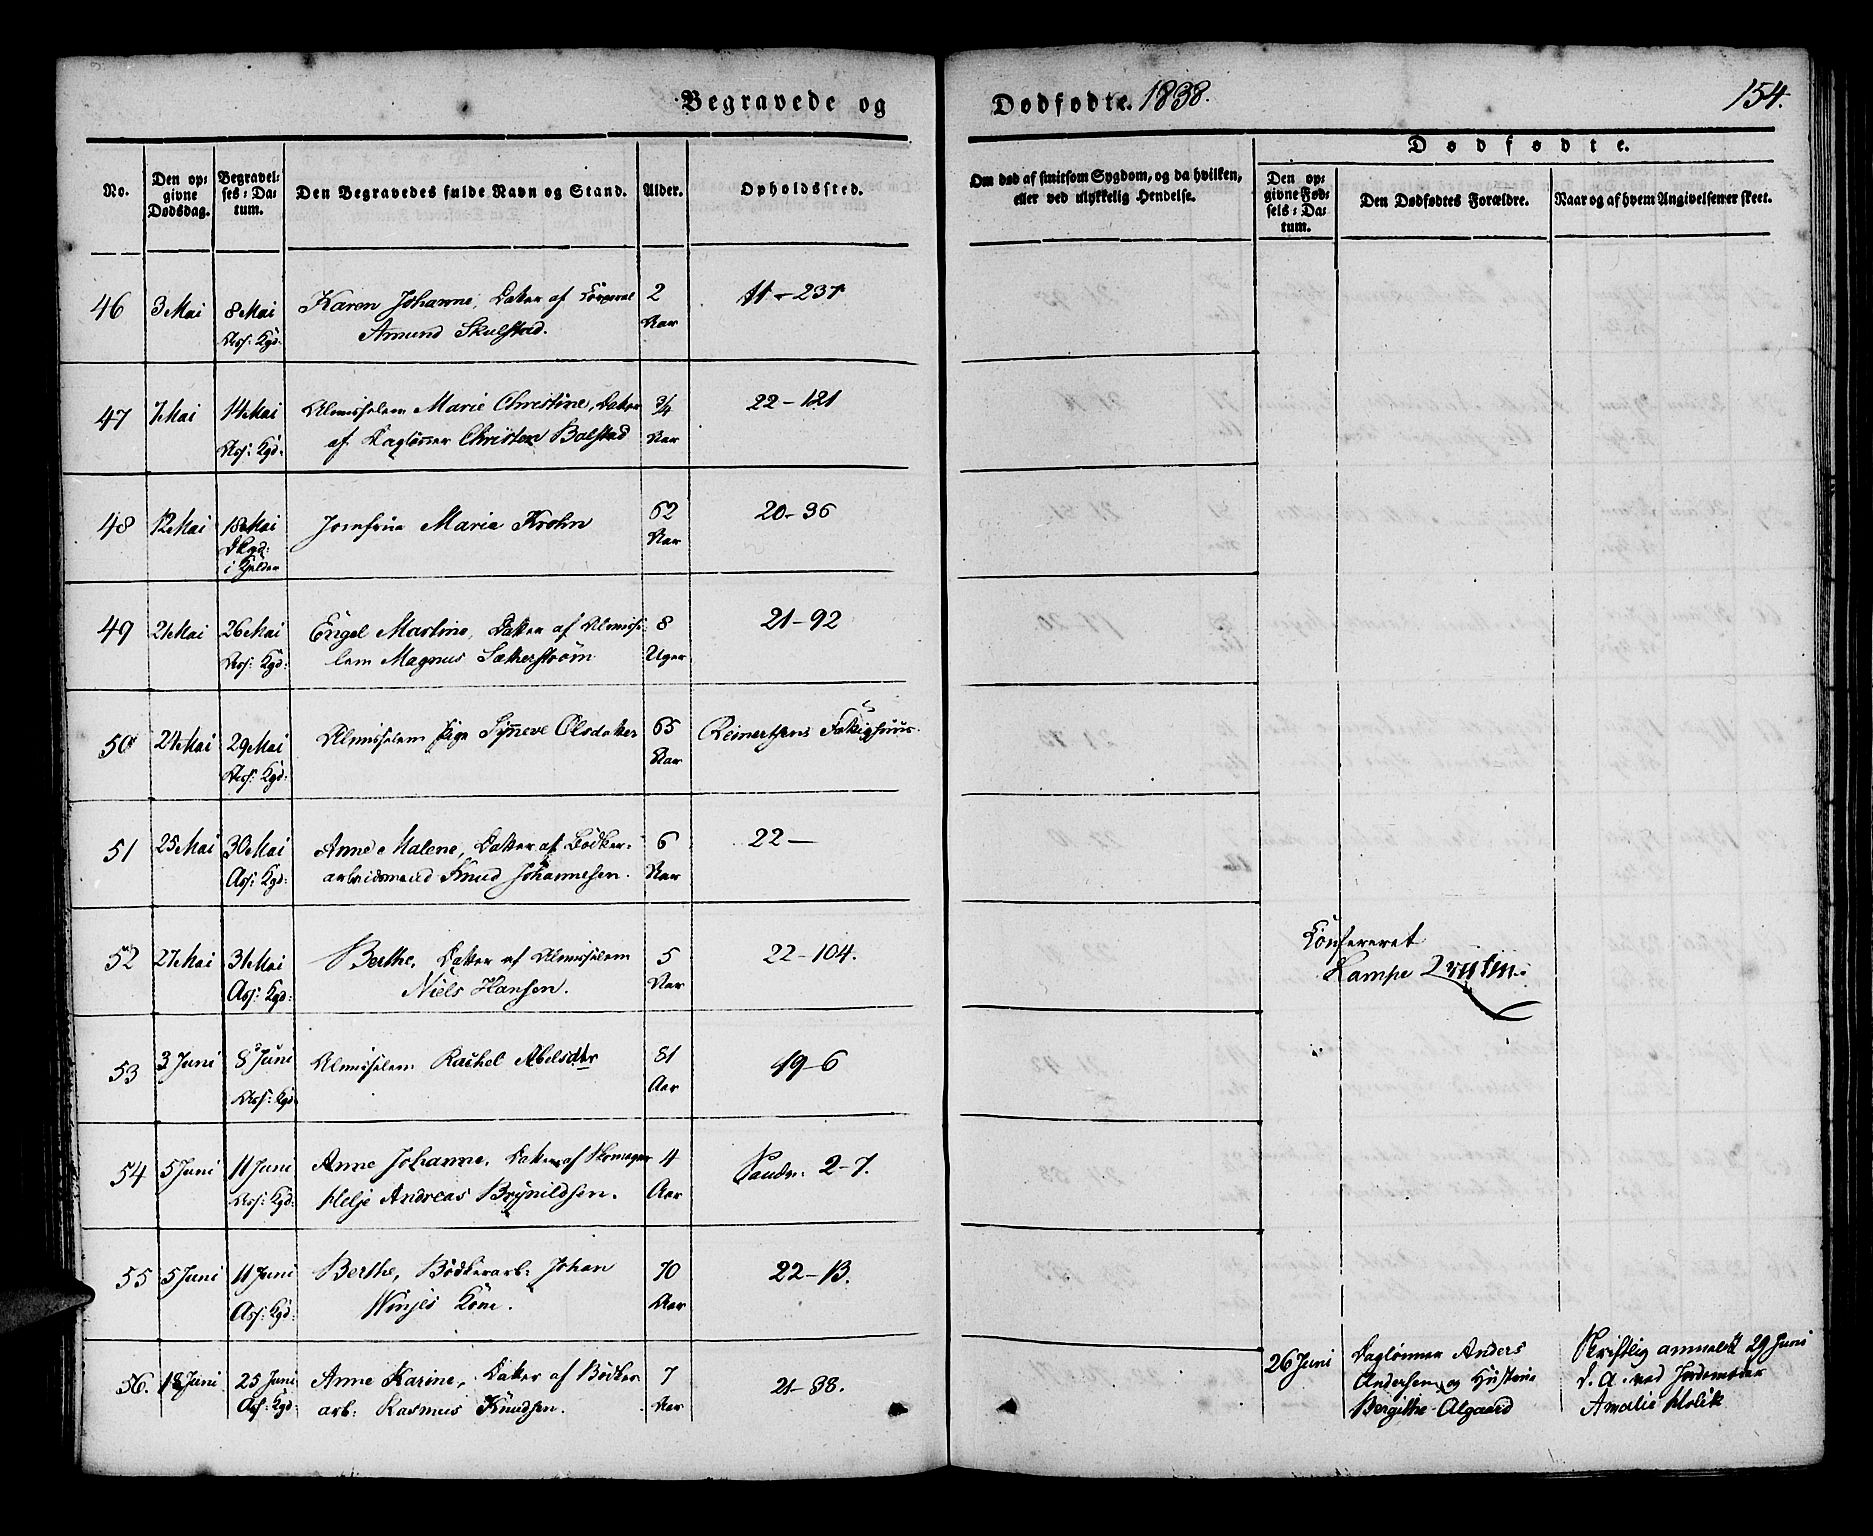 Begravede og
Dødfødte. 1838.
154.
No.
Den opgivne Dødsdag.
Begravelses-Datum.
Den Begravedes fulde Navn og Stand.
Alder.
Opholdssted.
Om død af smitsom Sygdom, og da hvilken, eller ved ulykkelig Hendelse.
Dødfødte.
Den opgivne Fødsels-Datum.
Den Dødfødtes Forældre.
Naar og af hvem Angivelsen er skeet.
46 3 Mai 8 Mai Karen Johanne, Datter af 2 11-237
Ass: Kgd: Amund Skulstad. Aar
47 7 Mai 14 Mai Almisselem Marie Christine, Datter 3/4 22-121
Ass: Kgd: af Dagløner Christen Bolstad Aar
48 12 Mai 18 Mai Jomfrue Maria Krohn 62 20-36
D Kgd: Aar
i Kjelder
49 21 Mai 26 Mai Engel Martine, Datter af Almisse- 8 21-92
Ass: Kgd: lem Magnus Sætherstrøm Uger
50 24 Mai 29 Mai Almisselem Pige Synneve Olsdatter 65 Reinertsens Fattighuus
Ass: Kgd: Aar
51 25 Mai 30 Mai Anne Malene, Datter af Bødker- 6 22-
Ass: Kgd: arbeidsmand Knud Johannesen. Aar
52 27 Mai 31 Mai Berthe, Datter af Almisselem 5 22-104.
Ass: Kgd: Niels Hansen. Aar
Confereret
Lampe
53 3 Juni 8 Juni Almisselem Rachel Abelsdtr 81 19-6
Ass: Kgd: Aar
54 5 Juni 11 Juni Anne Johanne, Datter af Skomager 4 Sandv. 2-7.
Ass: Kgd: Helje Andreas Brynildsen. Aar
55 5 Juni 11 Juni Berthe, Bødkerarb: Johan 70 22-13.
Ass: Kgd: Winjes Kone. Aar
56. 18 Juni 25 Juni Anne Karine, Datter af Bødker 7 21-88.
Ass: Kgd: arb: Rasmus Knudsen. Aar
26 Juni Daglønner Anders
Andersen og Hustrue
Bergithe Algaard
Skriftlig anmeldt 29 Juni
d. A. ved Jordemoder
Amalie Holck